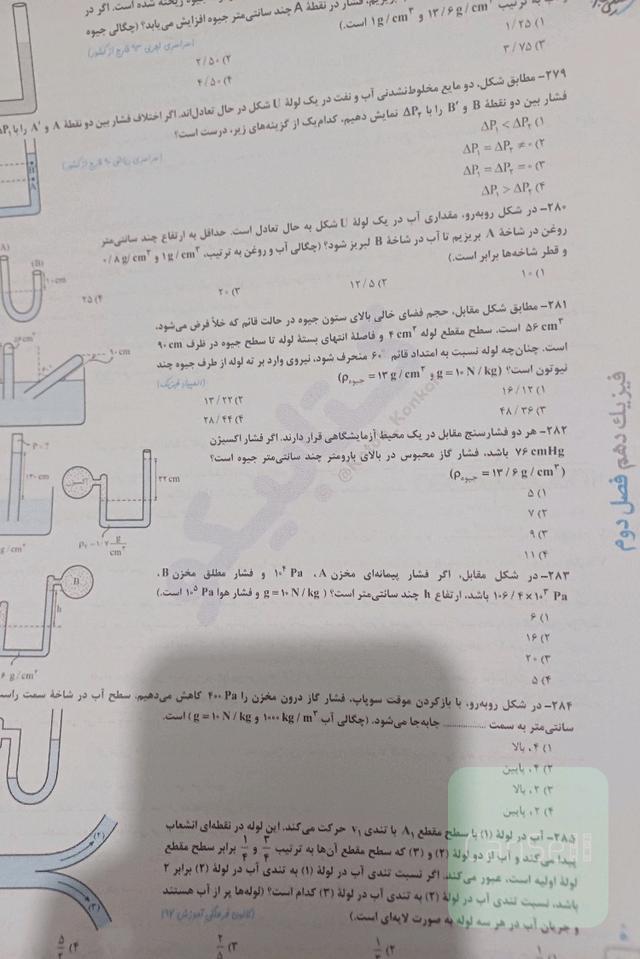 فشار در نقطهٔ A چند سانتی‌متر جیوه افزایش می‌یابد؟ (چگالی جیوه
به ترتیب ۱۳/۶ g/cm³ و ۱ g/cm³ است.)
۱) ۱/۲۵
۲) ۲/۵۰
۳) ۳/۷۵
۴) ۴/۵۰
۲۷۹- مطابق شکل، دو مایع مخلوط‌نشدنی آب و نفت در یک لولهٔ U شکل در حال تعادل‌اند. اگر اختلاف فشار بین دو نقطهٔ A و A′ را با ΔP₁
فشار بین دو نقطهٔ B و B′ را با ΔP₂ نمایش دهیم، کدام‌یک از گزینه‌های زیر، درست است؟
۱) ΔP₁ < ΔP₂
۲) ΔP₁ = ΔP₂ ≠ ۰
۳) ΔP₁ = ΔP₂ = ۰
۴) ΔP₁ > ΔP₂
B
A
۲۸۰- در شکل روبه‌رو، مقداری آب در یک لولهٔ U شکل به حال تعادل است. حداقل به ارتفاع چند سانتی‌متر
روغن در شاخهٔ A بریزیم تا آب در شاخهٔ B لبریز شود؟ (چگالی آب و روغن به ترتیب، ۱ g/cm³ و ۰/۸ g/cm³
و قطر شاخه‌ها برابر است.)
۱) ۱۰
۲) ۱۲/۵
۳) ۲۰
۴) ۲۵
(A)
(B)
۱۰ cm
۲۸۱- مطابق شکل مقابل، حجم فضای خالی بالای ستون جیوه در حالت قائم که خلأ فرض می‌شود،
۵۶ cm³ است. سطح مقطع لوله ۴ cm² و فاصلهٔ انتهای بستهٔ لوله تا سطح جیوه در ظرف ۹۰ cm
است. چنان‌چه لوله نسبت به امتداد قائم ۶۰° منحرف شود، نیروی وارد بر ته لوله از طرف جیوه چند
نیوتون است؟ (g = ۱۰ N/kg و ρجیوه = ۱۳ g/cm³)
(المپیاد فیزیک)
۱) ۱۶/۱۲
۲) ۱۳/۲۲
۳) ۴۸/۳۶
۴) ۲۸/۴۴
۲۸۲- هر دو فشارسنج مقابل در یک محیط آزمایشگاهی قرار دارند. اگر فشار اکسیژن
۷۶ cmHg باشد، فشار گاز محبوس در بالای بارومتر چند سانتی‌متر جیوه است؟
(ρجیوه = ۱۳/۶ g/cm³)
۱) ۵
۲) ۷
۳) ۹
۴) ۱۱
P = ?
اکسیژن
۳۲ cm
ρ₂ = ۱/۷ g/cm³
g/cm³
۲۸۳- در شکل مقابل، اگر فشار پیمانه‌ای مخزن A، ۱۰⁴ Pa و فشار مطلق مخزن B،
۱۰۶/۴ × ۱۰³ Pa باشد، ارتفاع h چند سانتی‌متر است؟ (g = ۱۰ N/kg و فشار هوا ۱۰⁵ Pa است.)
۱) ۶
۲) ۱۶
۳) ۲۰
۴) ۵
B
h
۶ g/cm³
۲۸۴- در شکل روبه‌رو، با بازکردن موقت سوپاپ، فشار گاز درون مخزن را ۴۰۰ Pa کاهش می‌دهیم. سطح آب در شاخهٔ سمت راست
سانتی‌متر به سمت ............ جابه‌جا می‌شود. (چگالی آب ۱۰۰۰ kg/m³ و g = ۱۰ N/kg است.)
۱) ۴، بالا
۲) ۴، پایین
۳) ۲، بالا
۴) ۲، پایین
۲۸۵- آب در لولهٔ (۱) با سطح مقطع A₁ با تندی v₁ حرکت می‌کند. این لوله در نقطه‌ای انشعاب
پیدا می‌کند و آب از دو لولهٔ (۲) و (۳) که سطح مقطع آن‌ها به ترتیب ۳/۴ و ۱/۴ برابر سطح مقطع
لولهٔ اولیه است، عبور می‌کند. اگر نسبت تندی آب در لولهٔ (۱) به تندی آب در لولهٔ (۲) برابر ۲
باشد، نسبت تندی آب در لولهٔ (۲) به تندی آب در لولهٔ (۳) کدام است؟ (لوله‌ها پر از آب هستند
و جریان آب در هر سه لوله به صورت لایه‌ای است.)
(کانون فرهنگی آموزش ۹۷)
۲) ۱/
۳) ۲/۵
۴) ۵/
(۲)
(۳)
فیزیک دهم فصل دوم
کتابیکو
@Ketabe Konkor